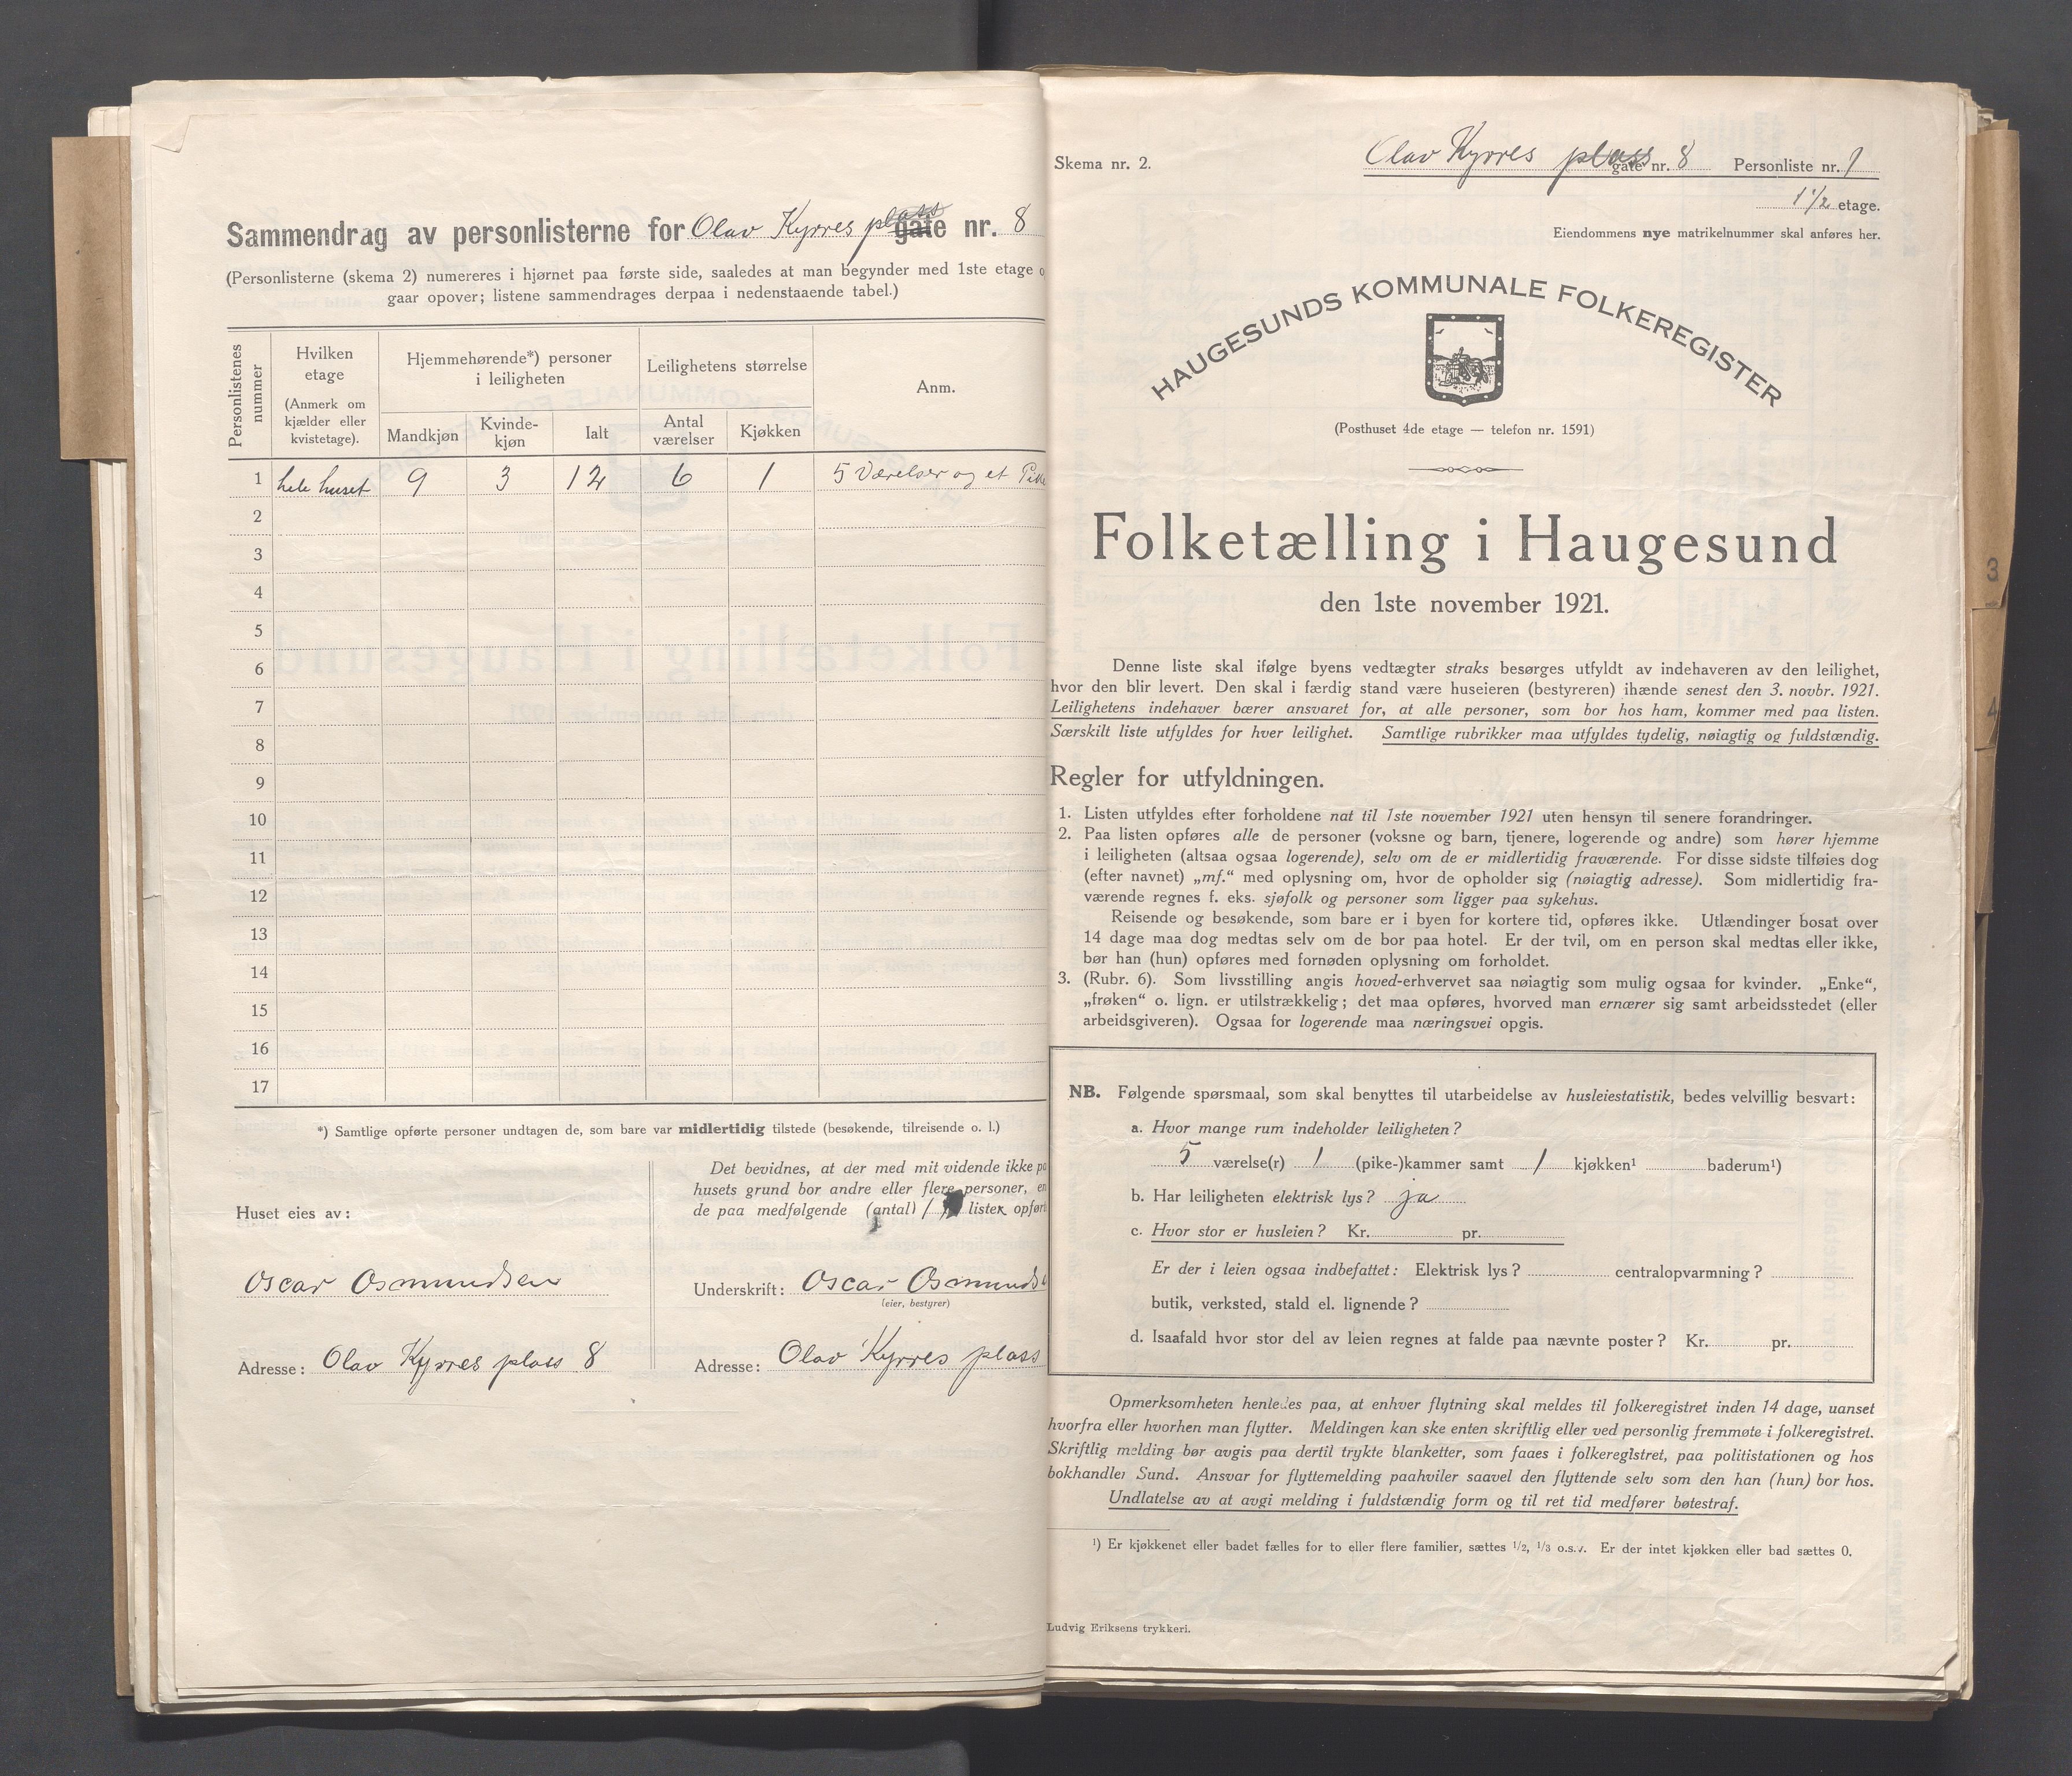 Sammendrag av personlisterne for Olav Kyrres plass gate nr. 8
(Personlisterne (skema 2) numereres i hjørnet paa første side, saaledes at man begynder med 1ste etage o
gaar opover; listene sammendrages derpaa i nedenstaaende tabel.)
Personlistenes nummer
Hvilken etage (Anmerk om kjælder eller kvistetage).
Hjemmehørende*) personer i leiligheten
Mandkjøn
Kvindekjøn
Ialt
Leilighetens størrelse
Antal værelser
Kjøkken
Anm.
1 hele huset 9 3 12 6 1 5 Værelser og et Pike
2
3
4
5
6
7
8
9
10
11
12
13
14
15
16
17
*) Samtlige opførte personer undtagen de, som bare var midlertidig tilstede (besøkende, tilreisende o. l.)
Huset eies av:
Oscar Osmundsen
Adresse: Olav Kyrres plass 8
Det bevidnes, at der med mit vidende ikke pa
husets grund bor andre eller flere personer, en
de paa medfølgende (antal) 1 lister opført
Underskrift: Oscar Osmunds
(eier, bestyrer)
Adresse: Olav Kyrres plass
Skema nr. 2.
Olav Kyrres plass gate nr. 8 Personliste nr. 1
1 1/2 etage.
Eiendommens nye matrikelnummer skal anføres her.
HAUGESUNDS KOMMUNALE FOLKEREGISTER
(Posthuset 4de etage — telefon nr. 1591)
Folketælling i Haugesund
den 1ste november 1921.
Denne liste skal ifølge byens vedtægter straks besørges utfyldt av indehaveren av den leilighet,
hvor den blir levert. Den skal i færdig stand være huseieren (bestyreren) ihænde senest den 3. novbr. 1921.
Leilighetens indehaver bærer ansvaret for, at alle personer, som bor hos ham, kommer med paa listen.
Særskilt liste utfyldes for hver leilighet. Samtlige rubrikker maa utfyldes tydelig, nøiagtig og fuldstændig.
Regler for utfyldningen.
1. Listen utfyldes efter forholdene nat til 1ste november 1921 uten hensyn til senere forandringer.
2. Paa listen opføres alle de personer (voksne og barn, tjenere, logerende og andre) som hører hjemme
i leiligheten (altsaa ogsaa logerende), selv om de er midlertidig fraværende. For disse sidste tilføies dog
(efter navnet) „mf.“ med oplysning om, hvor de opholder sig (nøiagtig adresse). Som midlertidig fra-
værende regnes f. eks. sjøfolk og personer som ligger paa sykehus.
Reisende og besøkende, som bare er i byen for kortere tid, opføres ikke. Utlændinger bosat over
14 dage maa dog medtas selv om de bor paa hotel. Er der tvil, om en person skal medtas eller ikke,
bør han (hun) opføres med fornøden oplysning om forholdet.
3. (Rubr. 6). Som livsstilling angis hoved-erhvervet saa nøiagtig som mulig ogsaa for kvinder. „Enke“,
„frøken“ o. lign. er utilstrækkelig; det maa opføres, hvorved man ernærer sig samt arbeidsstedet (eller
arbeidsgiveren). Ogsaa for logerende maa næringsvei opgis.
NB. Følgende spørsmaal, som skal benyttes til utarbeidelse av husleiestatistik, bedes velvillig besvart:
a. Hvor mange rum indeholder leiligheten?
5 værelse(r) 1 (pike-)kammer samt 1 kjøkken¹ baderum¹)
b. Har leiligheten elektrisk lys? ja
c. Hvor stor er husleien? Kr. pr.
Er der i leien ogsaa indbefattet: Elektrisk lys? centralopvarmning?
butik, verksted, stald el. lignende?
d. Isaafald hvor stor del av leien regnes at falde paa nævnte poster? Kr. pr.
Opmerksomheten henledes paa, at enhver flytning skal meldes til folkeregistret inden 14 dage, uanset
hvorfra eller hvorhen man flytter. Meldingen kan ske enten skriftlig eller ved personlig fremmøte i folkeregistret.
Skriftlig melding bør avgis paa dertil trykte blanketter, som faaes i folkeregistret, paa politistationen og hos
bokhandler Sund. Ansvar for flyttemelding paahviler saavel den flyttende selv som den han (hun) bor hos.
Undlatelse av at avgi melding i fuldstændig form og til ret tid medfører bøtestraf.
¹) Er kjøkkenet eller badet fælles for to eller flere familier, sættes 1/2, 1/3 o.s.v. Er der intet kjøkken eller bad sættes 0.
Ludvig Eriksens trykkeri.
3
4